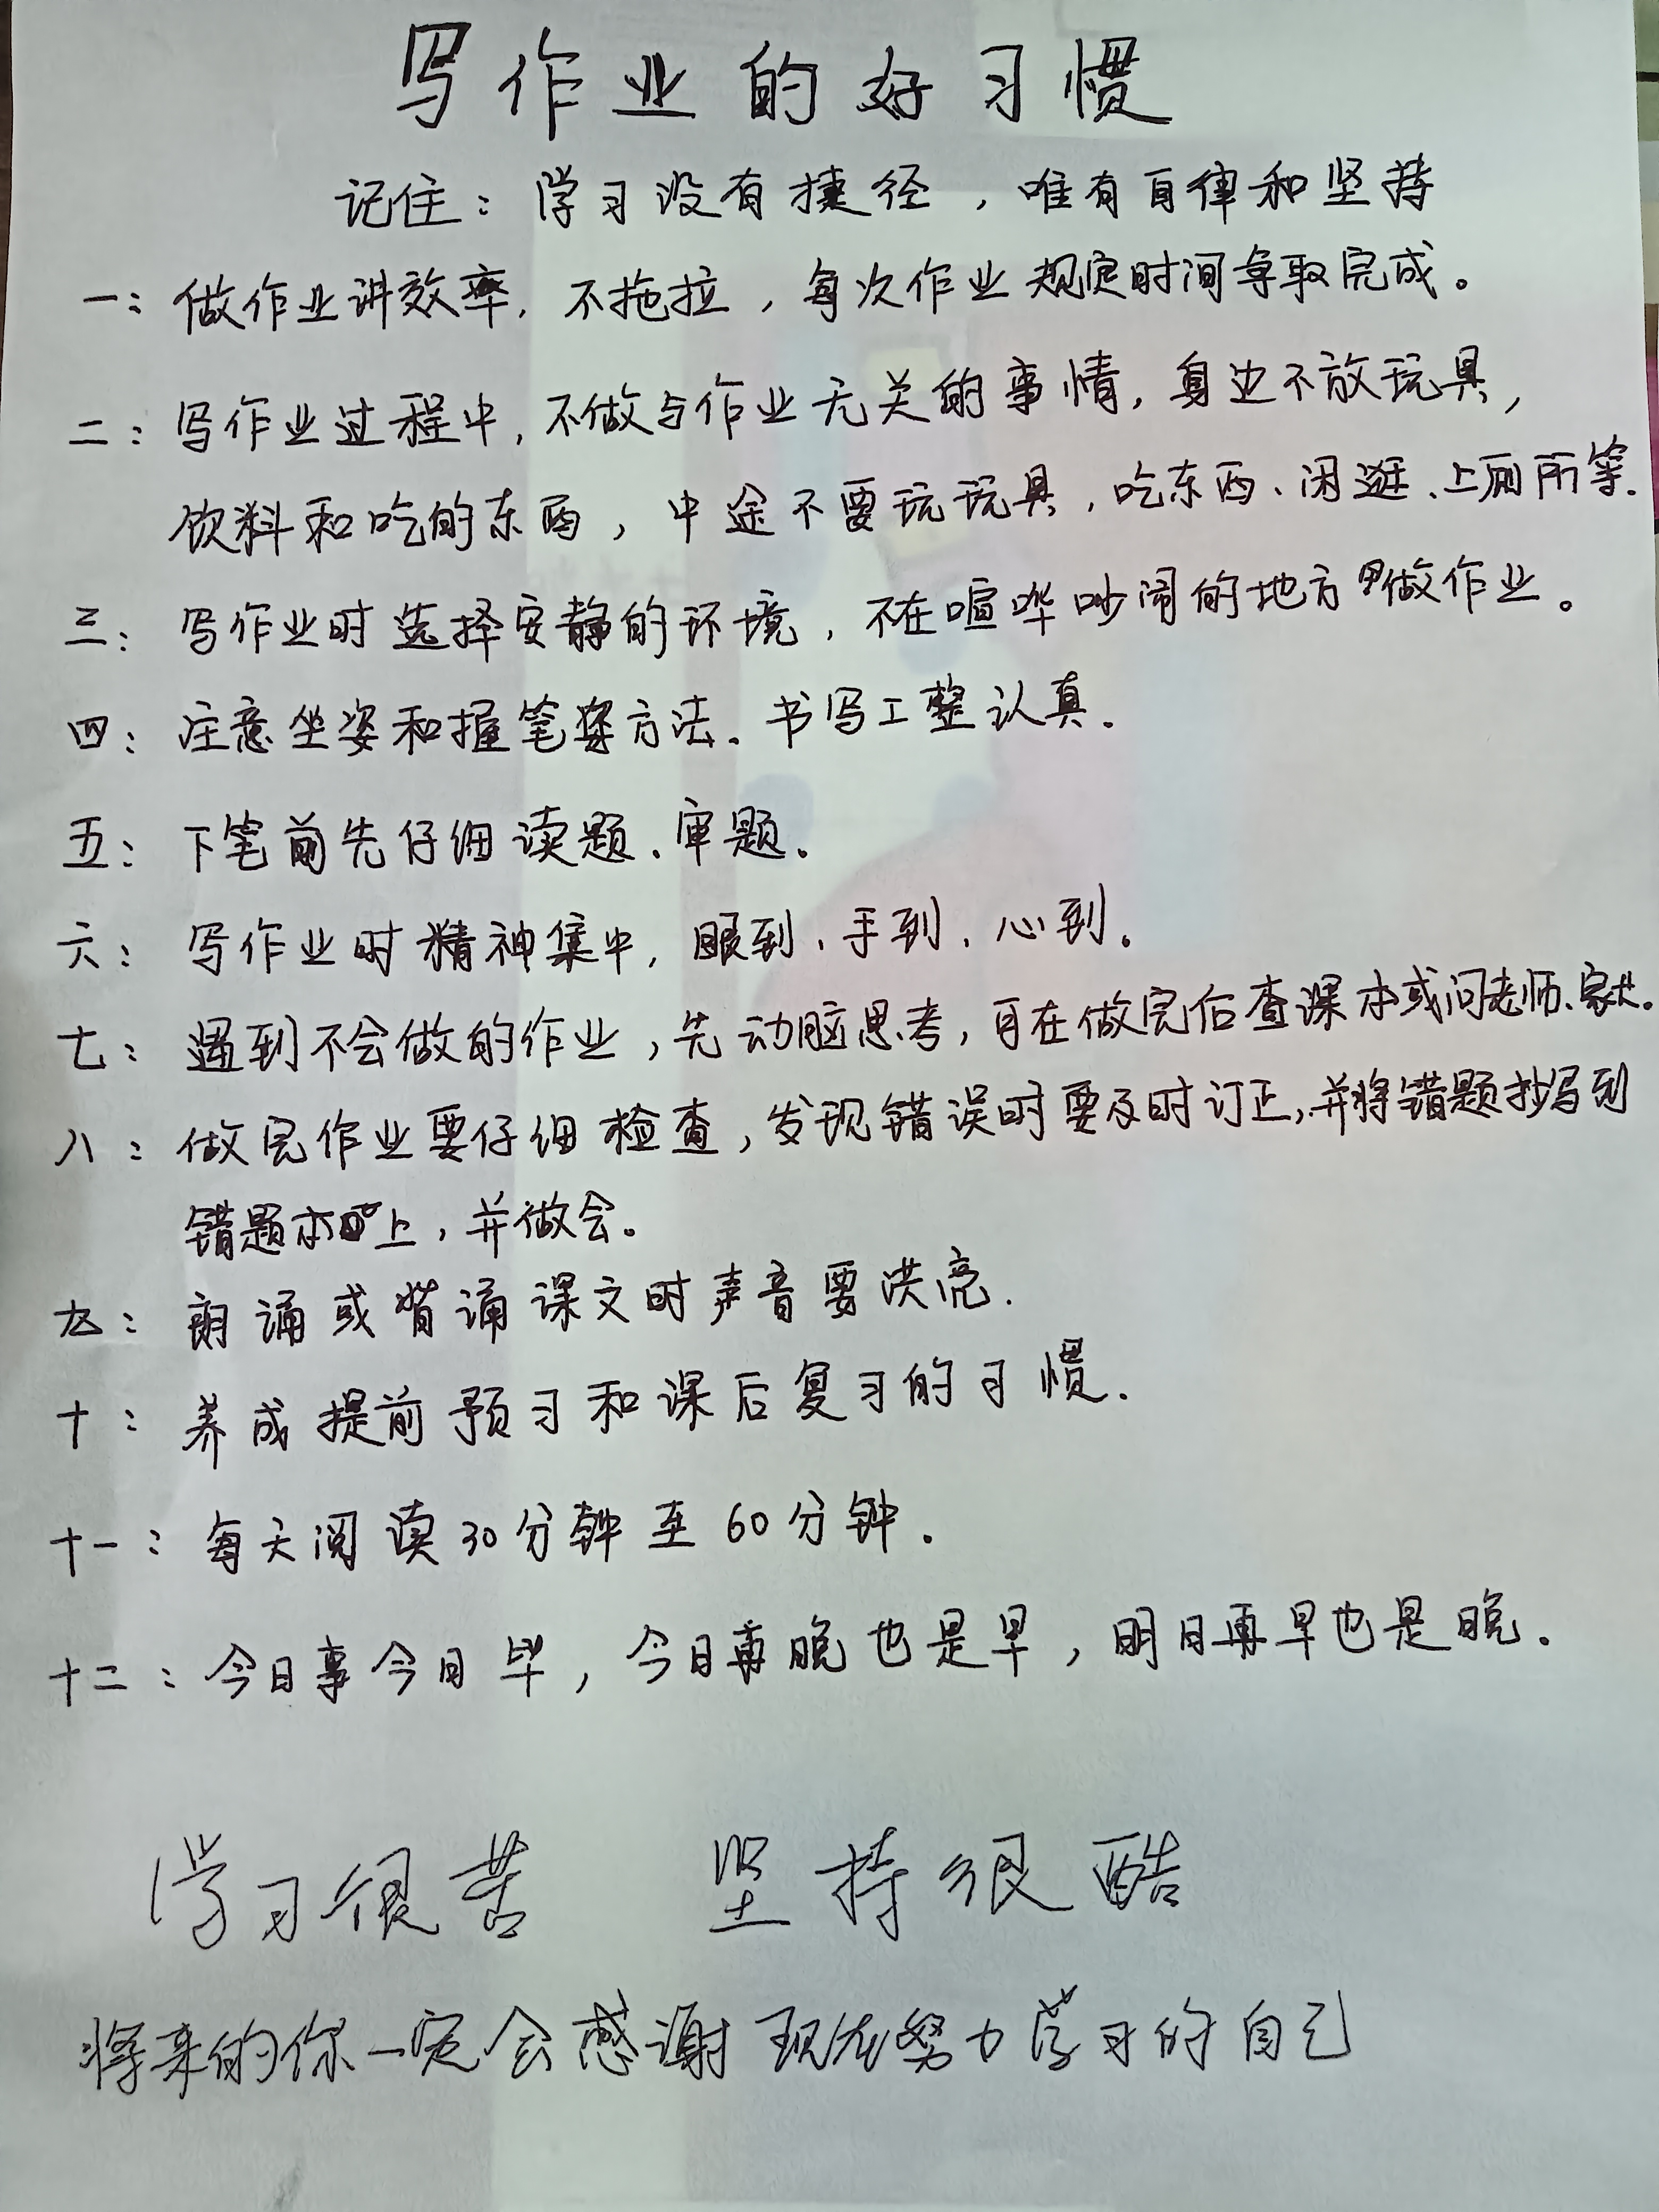 写作业的好习惯
记住：学习没有捷径，唯有自律和坚持
一：做作业讲效率，不拖拉，每次作业规定时间争取完成。
二：写作业过程中，不做与作业无关的事情，身边不放玩具，
饮料和吃的东西，中途不要玩玩具，吃东西、闲逛、上厕所等.
三：写作业时选择安静的环境，不在喧哗吵闹的地方做作业。
四：注意坐姿和握笔方法。书写工整认真.
五：下笔前先仔细读题、审题。
六：写作业时精神集中，眼到、手到、心到。
七：遇到不会做的作业，先动脑思考，再在做完后查课本或问老师、家长。
八：做完作业要仔细检查，发现错误时要及时订正，并将错题抄写到
错题本上，并做会。
九：朗诵或背诵课文时声音要洪亮.
十：养成提前预习和课后复习的习惯.
十一：每天阅读30分钟至60分钟.
十二：今日事今日毕，今日再晚也是早，明日再早也是晚.
学习很苦 坚持很酷
将来的你一定会感谢现在努力学习的自己